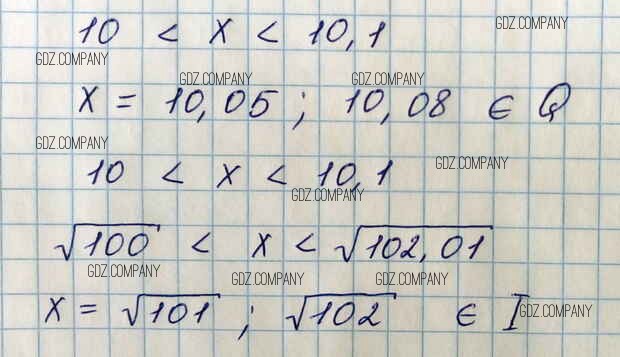 10 < x < 10,1 GDZ.COMPANY
GDZ.COMPANY
GDZ.COMPANY GDZ.COMPANY
x = 10,05 ; 10,08 ∈ Q
GDZ.COMPANY
10 < x < 10,1 GDZ.COMPANY
GDZ.COMPANY
√100 < x < √102,01
GDZ.COMPANY GDZ.COMPANY GDZ.COMPANY
x = √101 ; √102 ∈ I GDZ.COMPANY